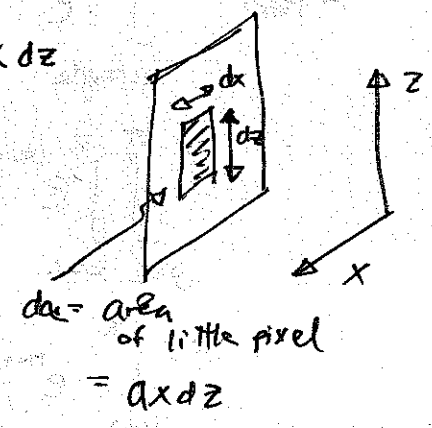 x dz
dx
dz
z
x
da = area
of little pixel
= dx dz